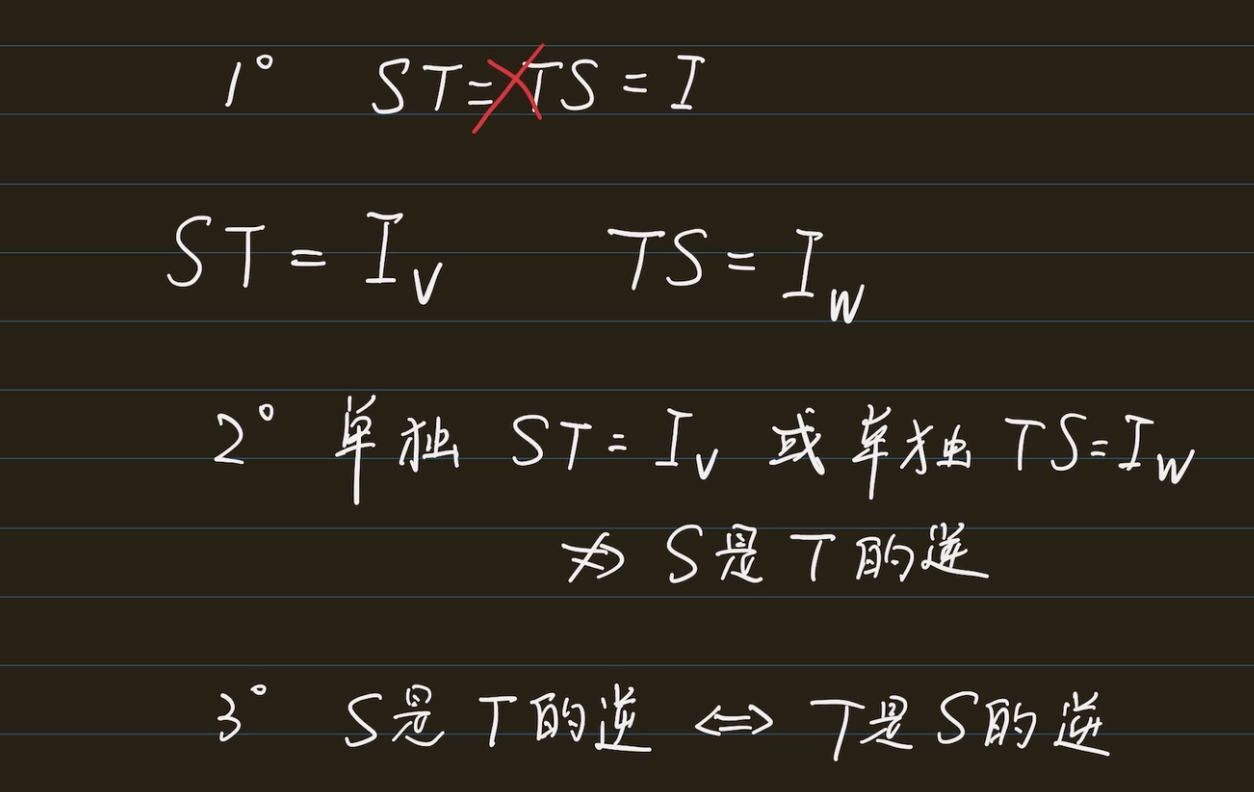 1° ST=TS=I
ST=I_V TS=I_W
2° 单独 ST=I_V 或单独 TS=I_W
⇏ S是T的逆
3° S是T的逆 ⇔ T是S的逆